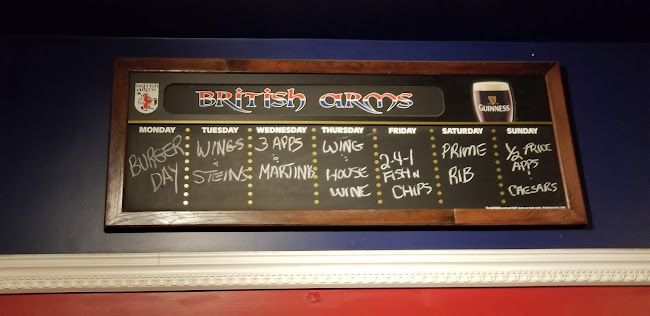 BRITISH ARMS
BRITISH ARMS
GUINNESS
MONDAY
BURGER
DAY
TUESDAY
WINGS
&
STEINS
WEDNESDAY
3 APPS
&
MARTINIS
THURSDAY
WING
&
HOUSE
WINE
FRIDAY
2-4-1
FISH N
CHIPS
SATURDAY
PRIME
RIB
SUNDAY
1/2 PRICE
APPS
&
CAESARS